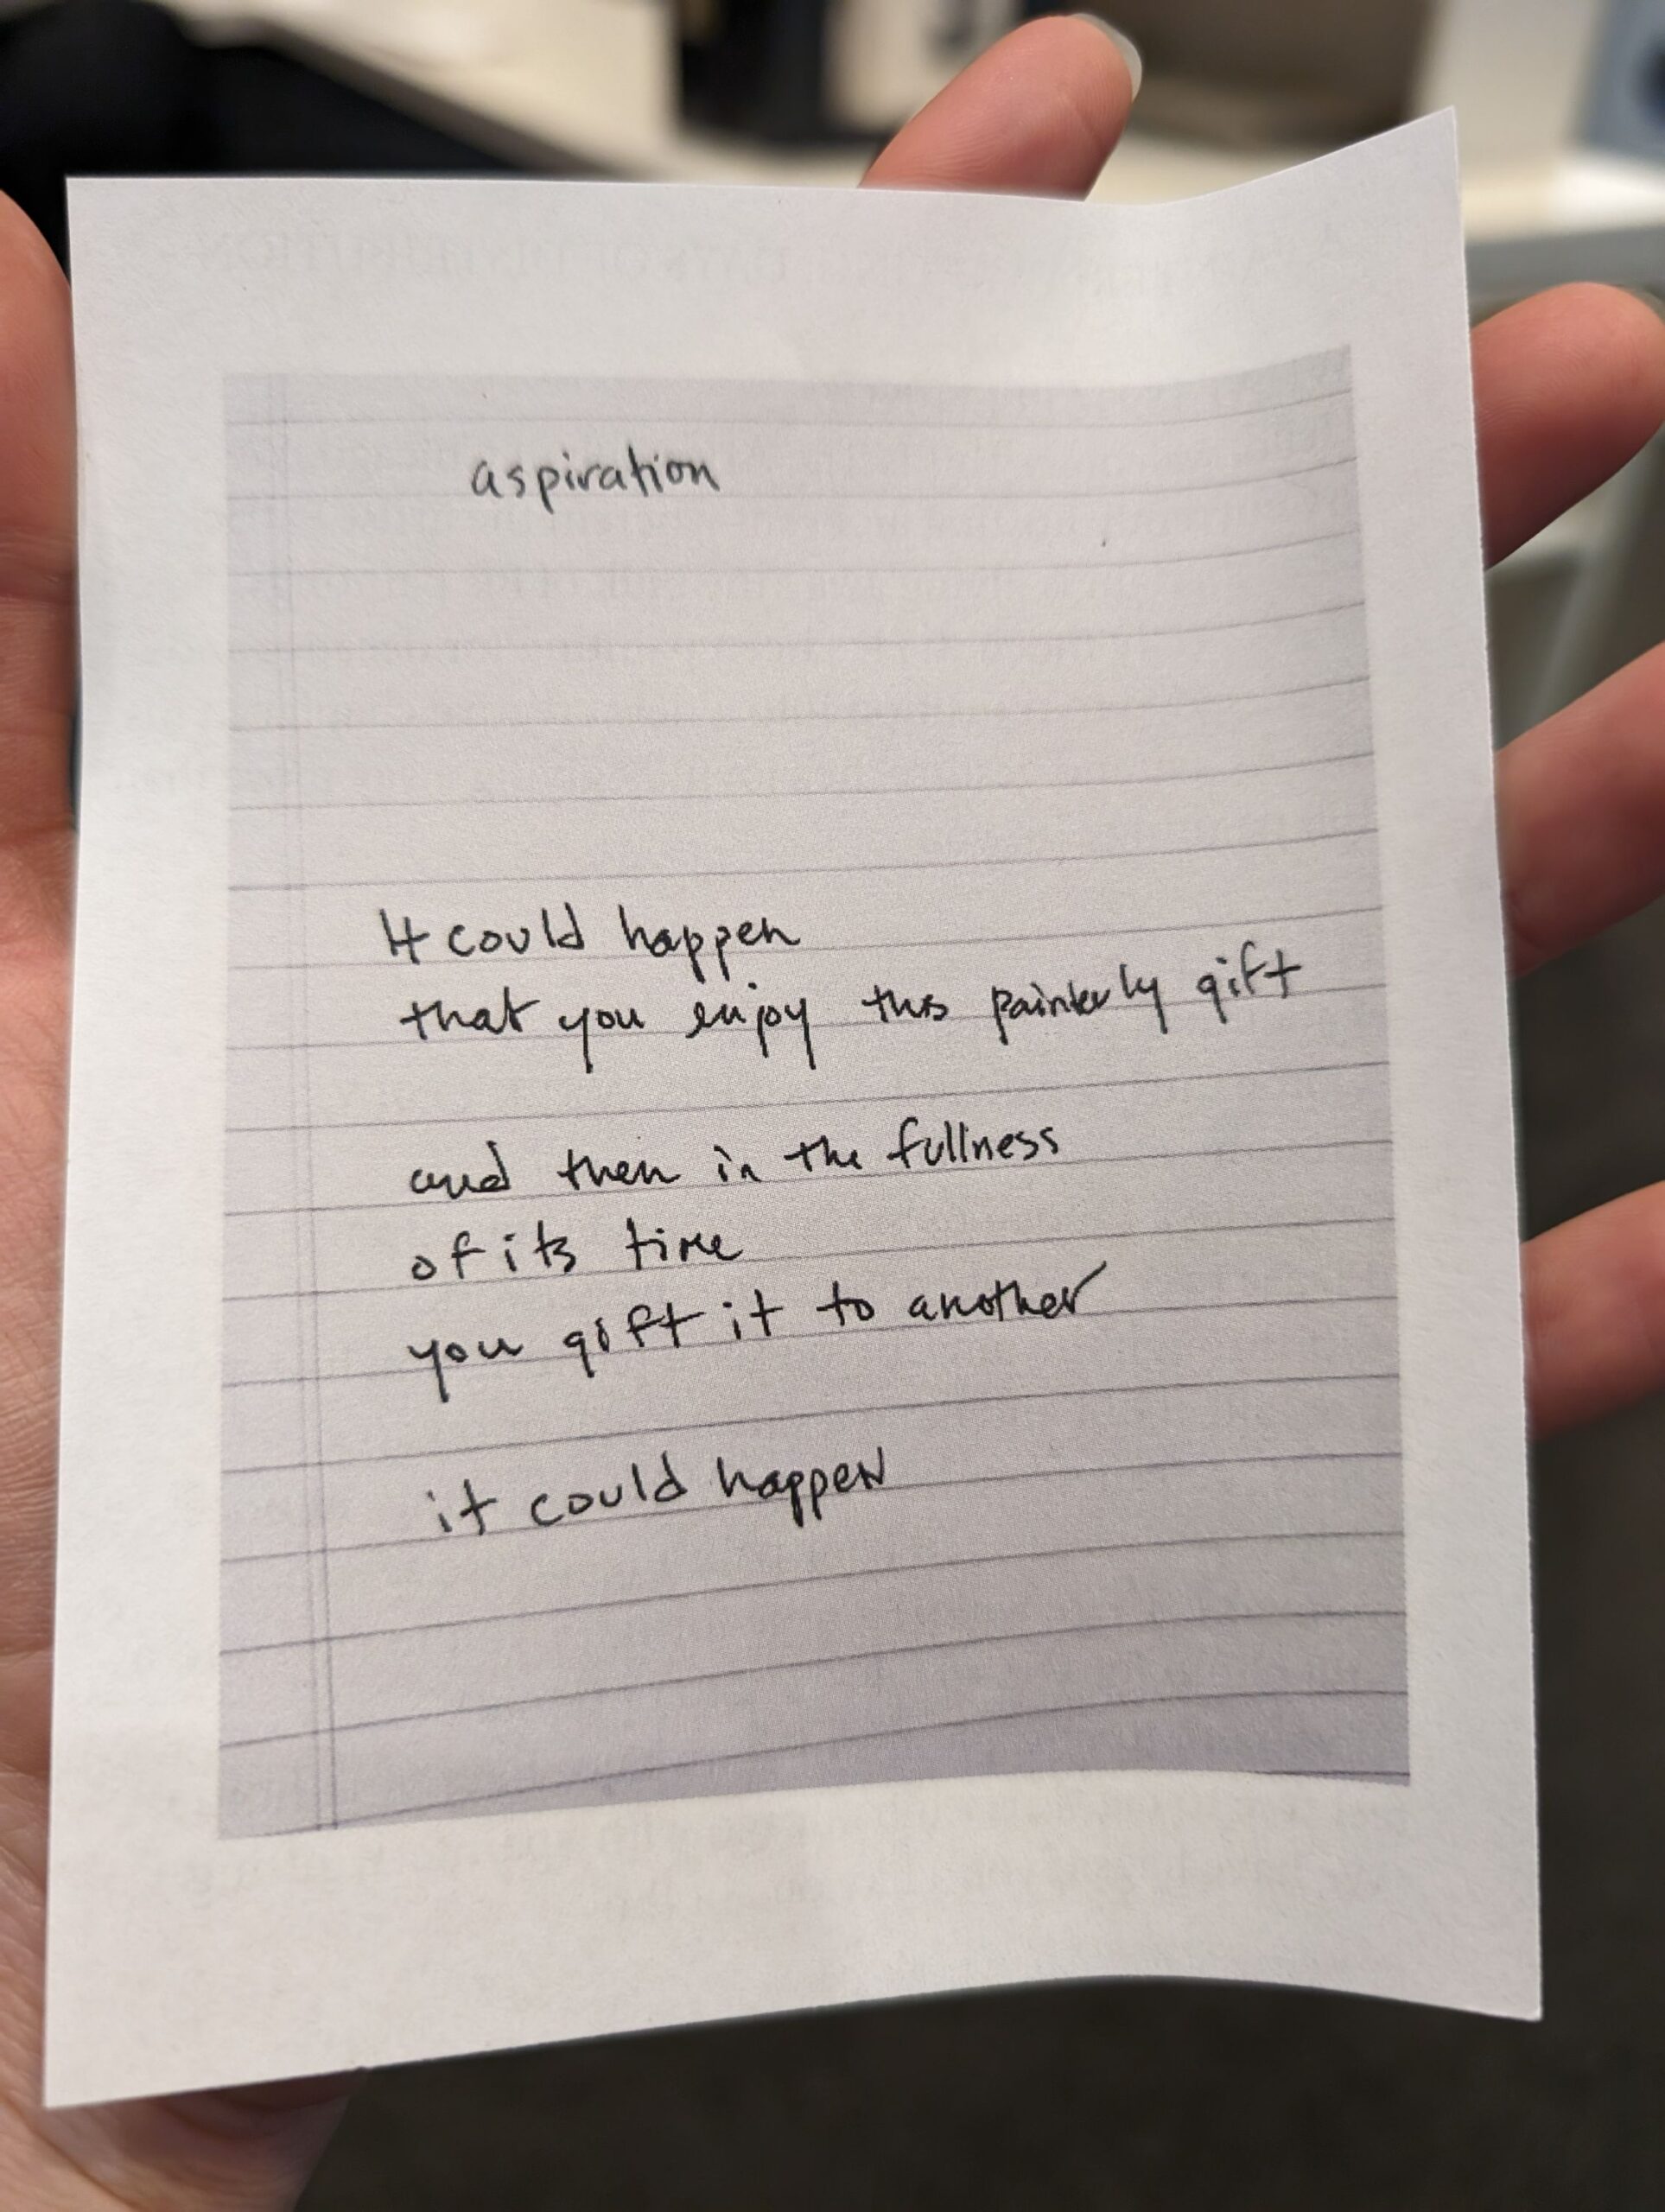 aspiration
It could happen
that you enjoy this painterly gift
and then in the fullness
of its time
you gift it to another
it could happen